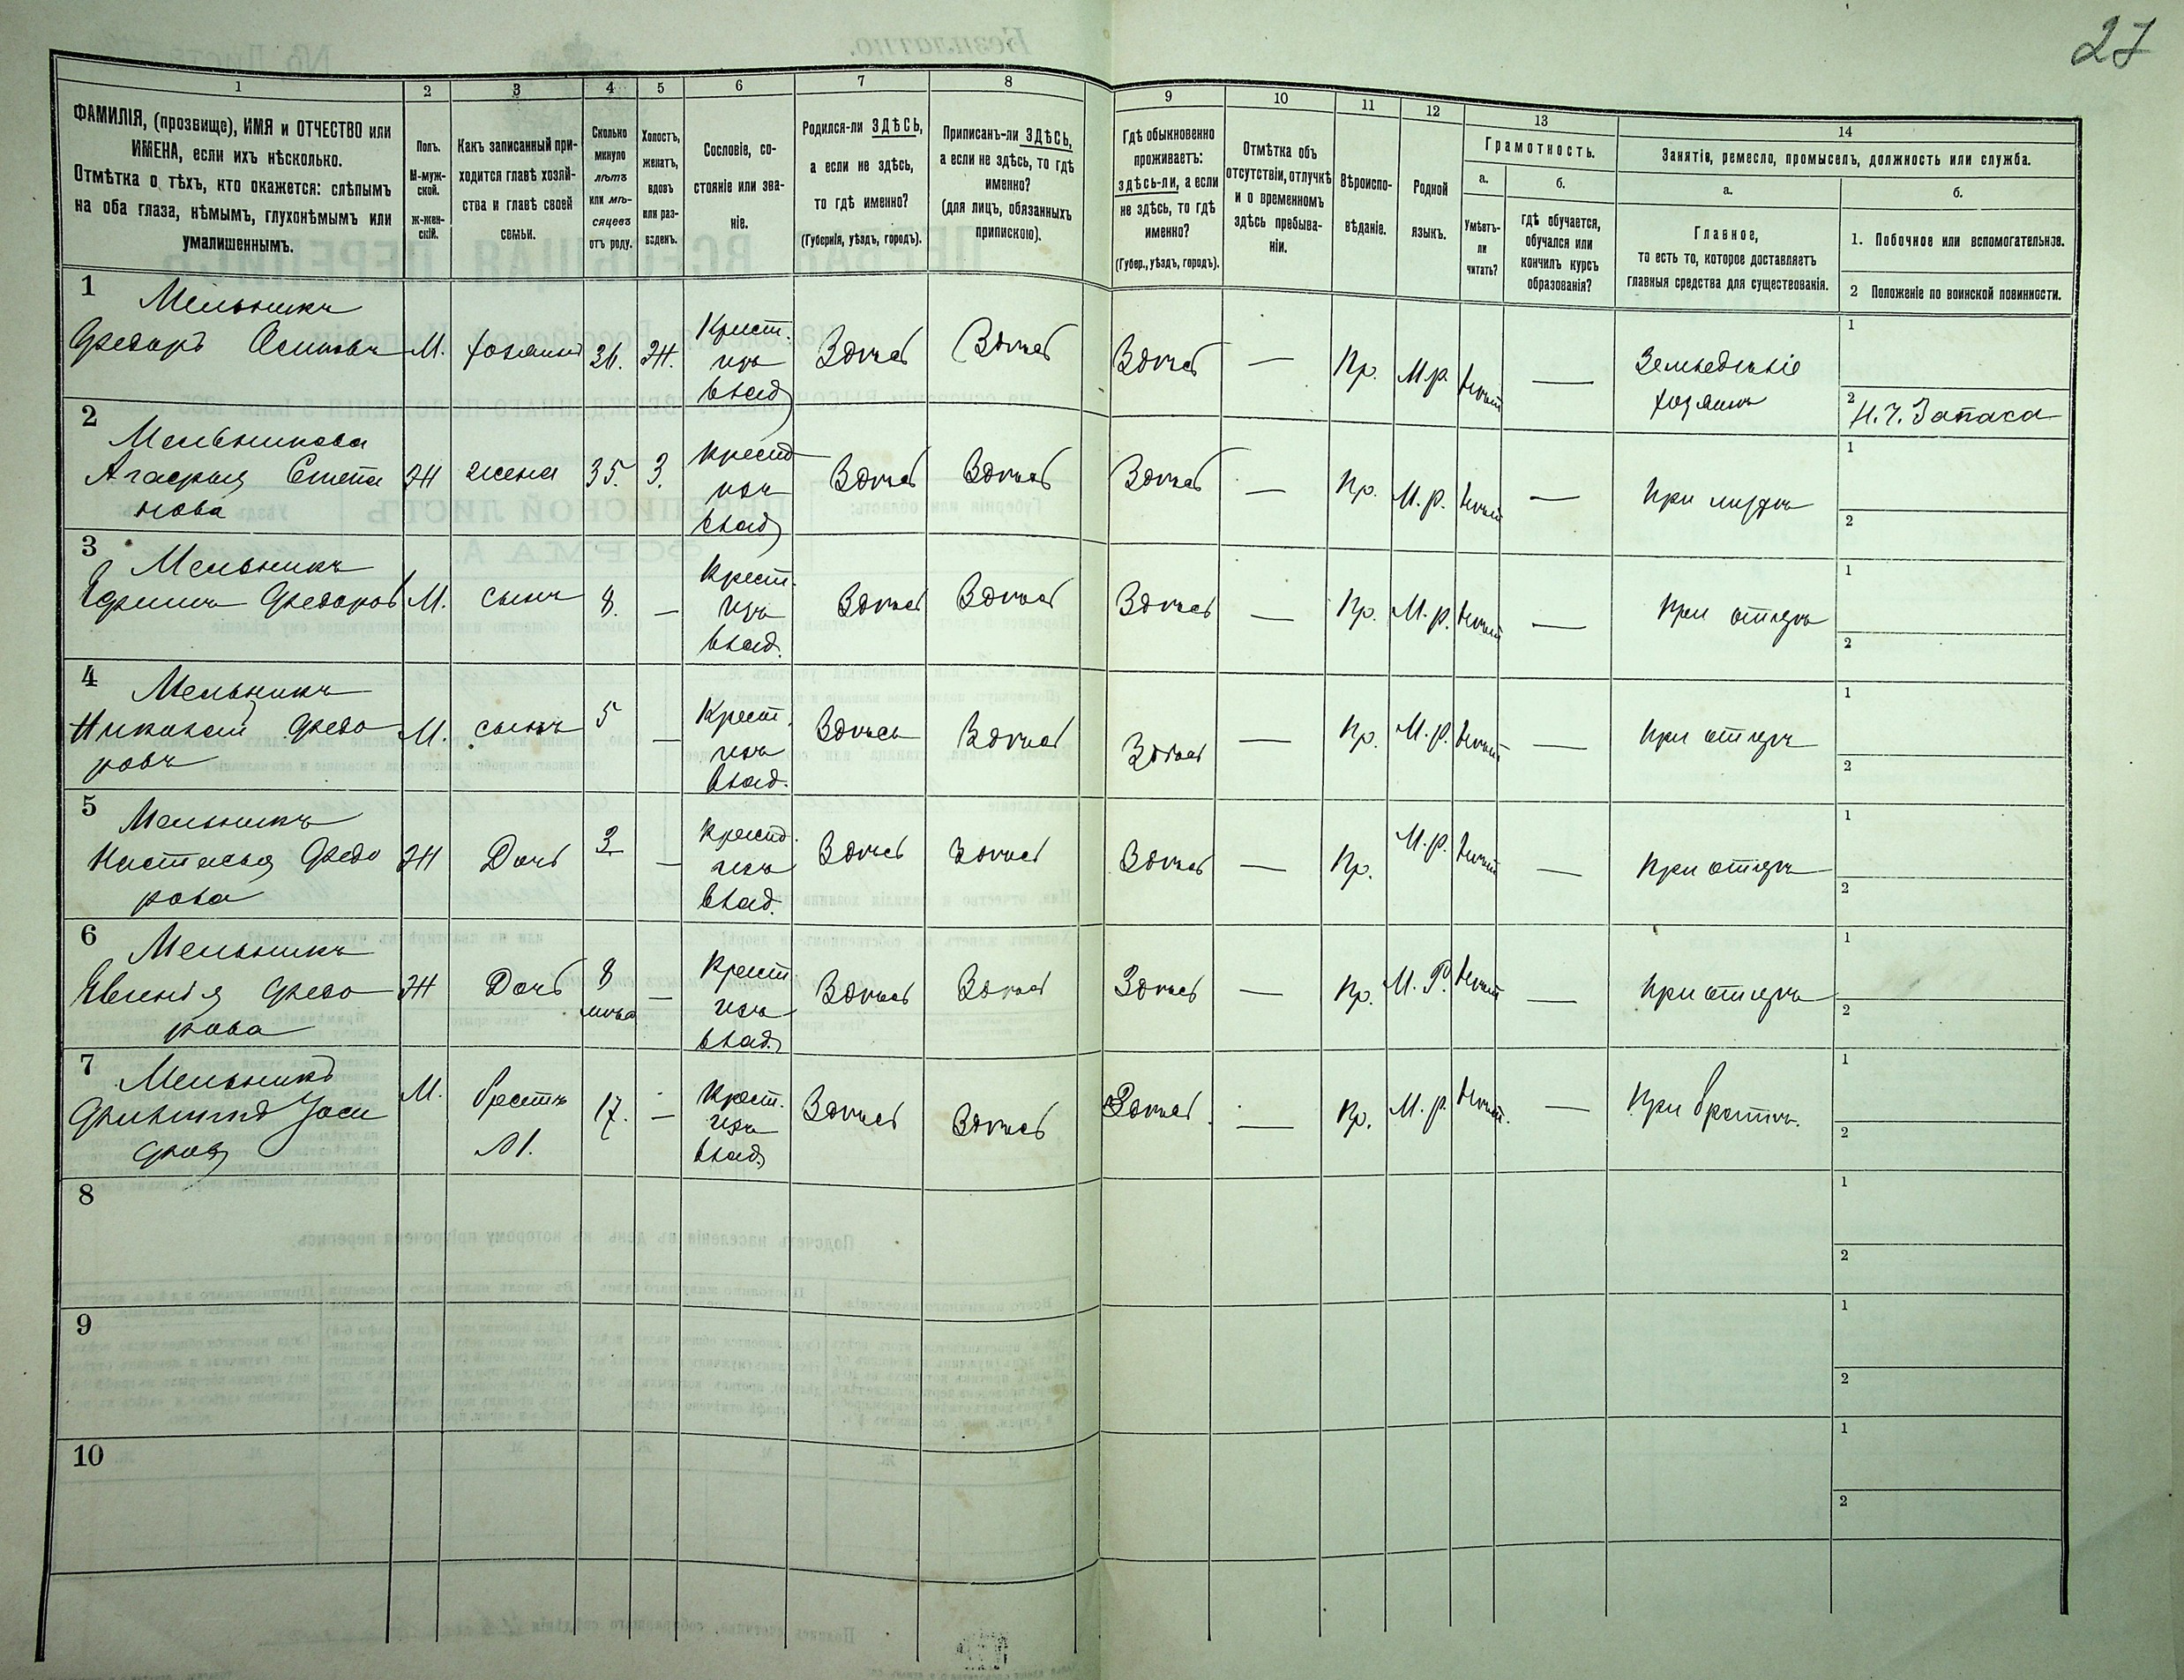 27
1 2 3 4 5 6 7 8 9 10 11 12 13 14
ФАМИЛІЯ, (прозвище), ИМЯ и ОТЧЕСТВО или
ИМЕНА, если ихъ нѣсколько.
Отмѣтка о тѣхъ, кто окажется: слѣпымъ
на оба глаза, нѣмымъ, глухонѣмымъ или
умалишеннымъ.
Полъ.
М-муж-
ской.
ж-жен-
скій.
Какъ записанный при-
ходится главѣ хозяй-
ства и главѣ своей
семьи.
Сколько
минуло
лѣтъ
или мѣ-
сяцевъ
отъ роду.
Холостъ,
женатъ,
вдовъ
или раз-
веденъ.
Сословіе, со-
стояніе или зва-
ніе.
Родился-ли ЗДѢСЬ,
а если не здѣсь,
то гдѣ именно?
(Губернія, уѣздъ, городъ).
Приписанъ-ли ЗДѢСЬ,
а если не здѣсь, то гдѣ
именно?
(для лицъ, обязанныхъ
припискою).
Гдѣ обыкновенно
проживаетъ:
здѣсь-ли, а если
не здѣсь, то гдѣ
именно?
(Губер., уѣздъ, городъ).
Отмѣтка объ
отсутствіи, отлучкѣ
и о временномъ
здѣсь пребыва-
ніи.
Вѣроиспо-
вѣданіе.
Родной
языкъ.
Грамотность.
а.
Умѣетъ-
ли
читать?
б.
гдѣ обучается,
обучался или
кончилъ курсъ
образованія?
Занятіе, ремесло, промыселъ, должность или служба.
а.
Главное,
то есть то, которое доставляетъ
главныя средства для существованія.
б.
1. Побочное или вспомогательное.
2 Положеніе по воинской повинности.
1
Мельникъ
Федоръ Осиповъ М. хозяинъ Ж. Крест.
изъ
влад. Здѣсь Здѣсь Здѣсь — Пр. М.р. — Земледѣліе
хозяинъ
1
2 Н.Ч. Запаса
2
Мельникова
Агафія Степа
нова Ж жена 35. З. крест
изъ
влад Здѣсь Здѣсь Здѣсь — Пр. М.р. — При мужѣ
1
2
3
Мельникъ
Ефимъ Федоровъ М. сынъ 8. — Крест.
изъ
влад. Здѣсь Здѣсь Здѣсь — Пр. М.р. — При отцѣ
1
2
4
Мельникъ
Николай Федо
ровъ М. сынъ 5 — Крест.
изъ
влад. Здѣсь Здѣсь Здѣсь — Пр. М.р. — При отцѣ
1
2
5
Мельникъ
Настасья Федо
рова Ж Дочь 3 — Крест.
изъ
влад. Здѣсь Здѣсь Здѣсь — Пр. М.р. — При отцѣ
1
2
6
Мельникъ
Евгенія Федо
рова Ж Дочь 8
мѣс — Крест.
изъ
влад. Здѣсь Здѣсь Здѣсь — Пр. М.Р. — При отцѣ
1
2
7
Мельникъ
Филиппъ М. братъ
М. 17. — Крест.
изъ
влад. Здѣсь Здѣсь Здѣсь — Пр. М.р. — При братѣ.
1
2
8
1
2
9
1
2
10
1
2